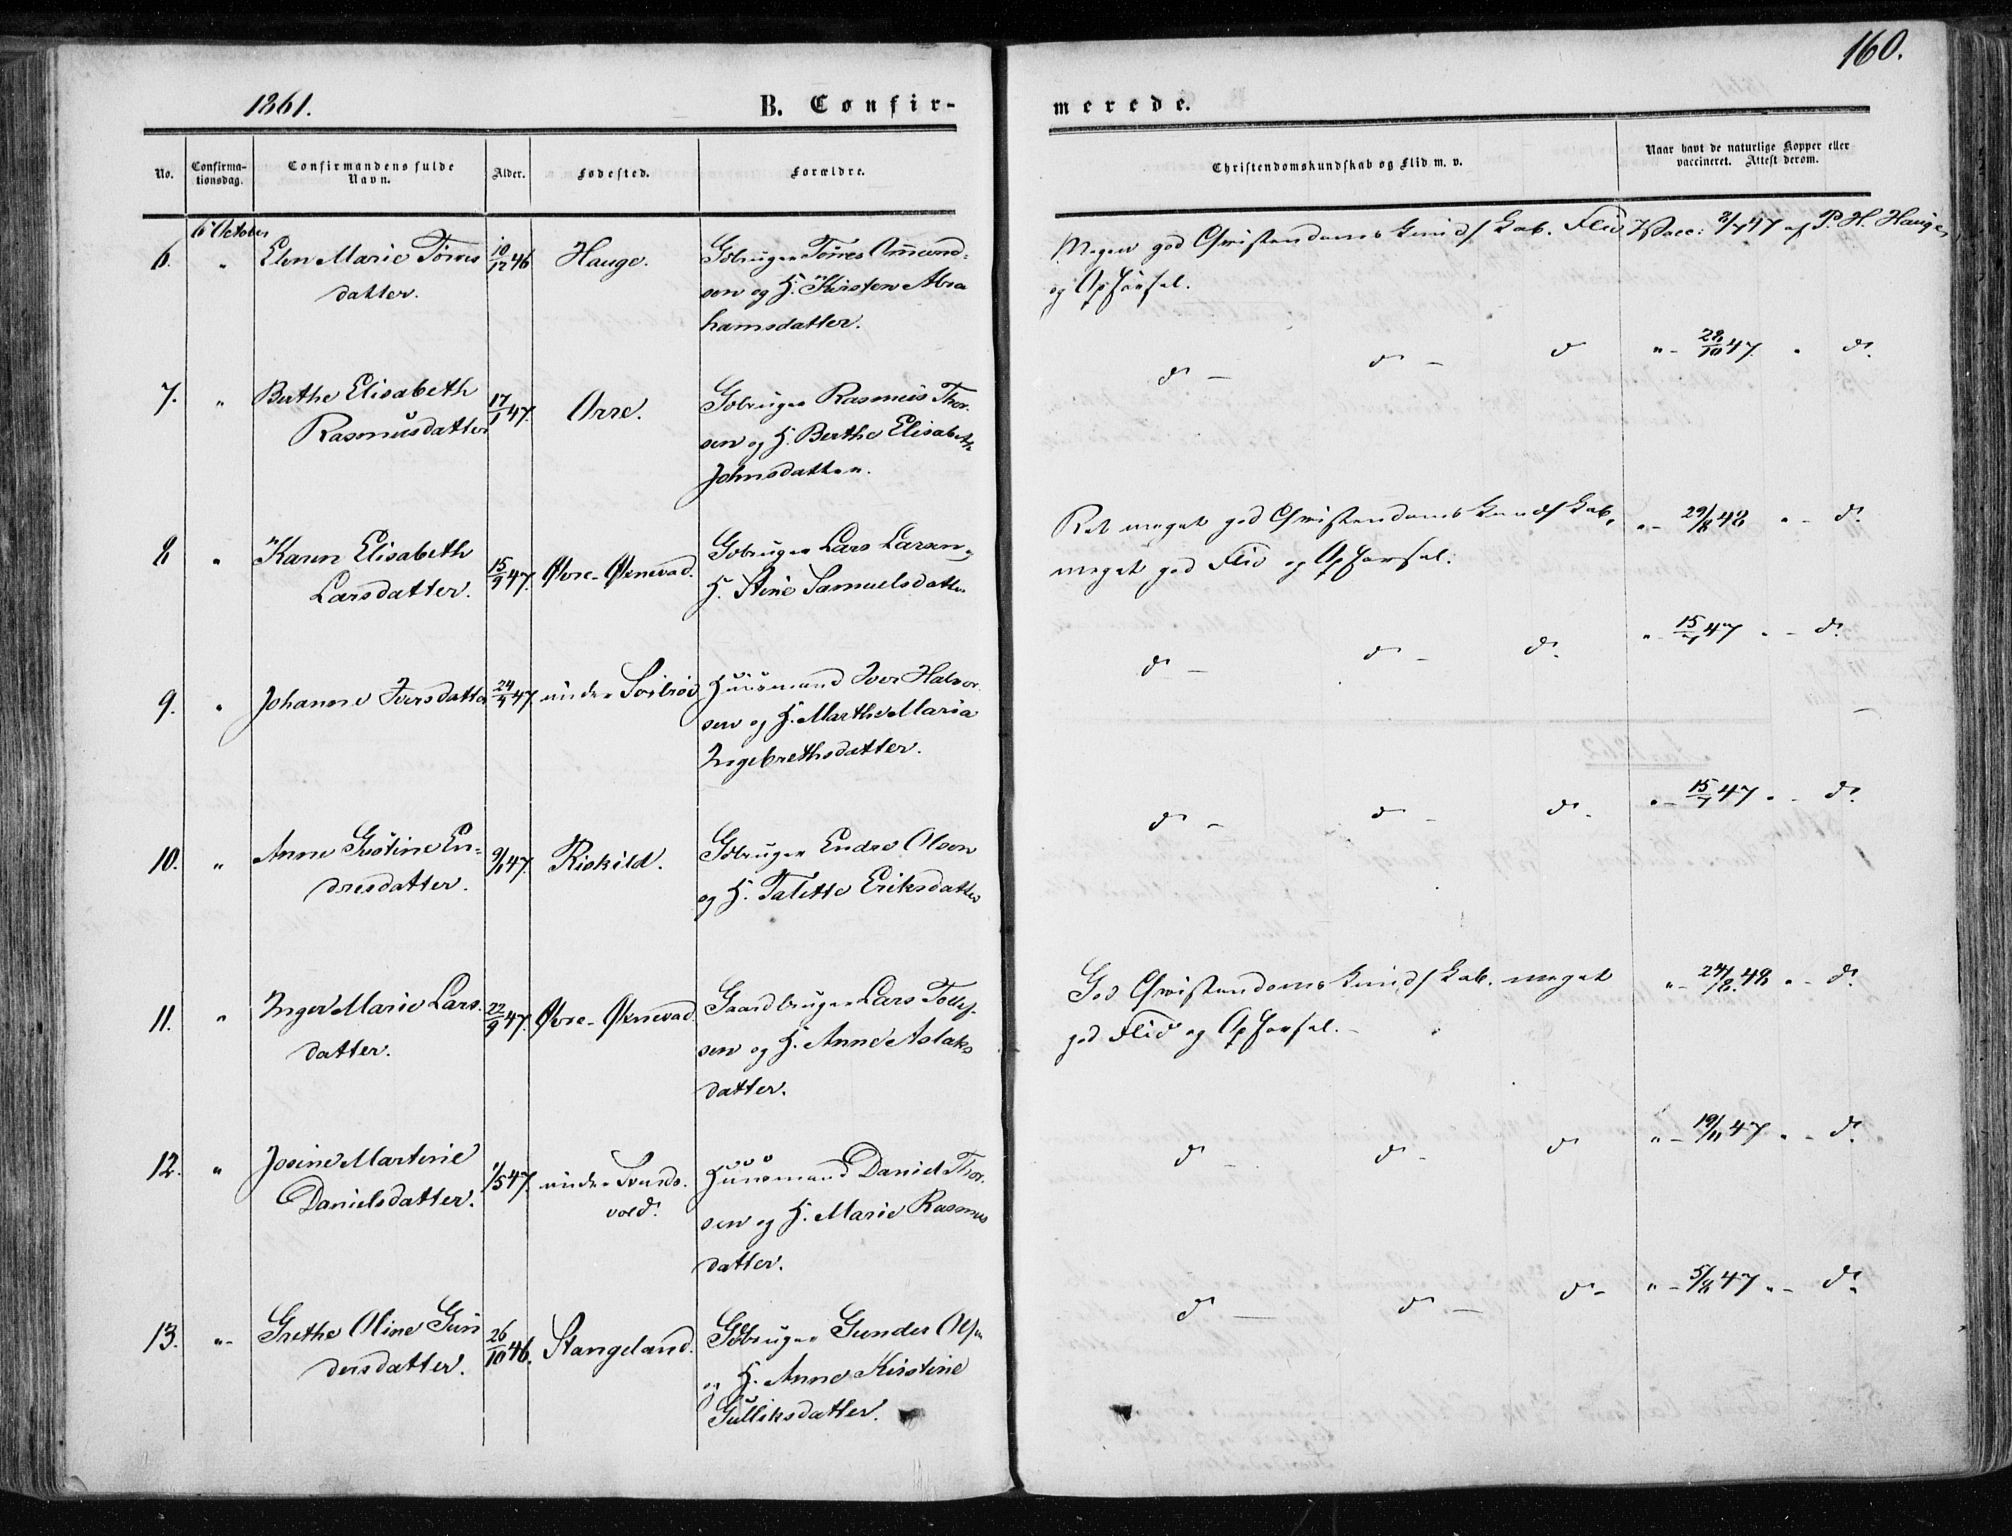 160.
1861.
B. Confir-
merede.
No.
Confirma-
tionsdag.
Confirmandens fulde
Navn.
Alder.
Fødested.
Forældre.
Christendomskundskab og Flid m. v.
Naar havt de naturlige Kopper eller
vaccineret. Attest derom.
6 October
6. " Elen Marie Tørres
datter.
10/12 46
Hauge.
Gbruger Tørres Omund-
sen og H. Kirsten Abra
hamsdatter.
Megen god Christendomskundskab. Flid
og Opførsel.
Vacc: 3/7 47 af P. H. Hauge
7. " Berthe Elisabeth
Rasmusdatter
17/1 47.
Orre.
Gbruger Rasmus Thor-
sen og H. Berthe Elisabeth
Johnsdatter.
do - do - do
" - 28/10 47. " do.
8 " Karen Elisabeth
Larsdatter.
15/9 47.
Øvre-Øxnevad.
Gbruger Lars Larsen og
H. Stine Samuelsdatter
Ret meget god Christendomskundskab,
meget god Flid og Opførsel.
" - 29/8 48 " - do.
9. " Johanne Iversdatter
24/4 47.
under
Huusmand Iver Halvor
sen og H. Marthe Maria
Ingebrethsdatter.
do - do - do.
" - 15/7 47 " - do.
10. " Anne Gustine En-
dresdatter.
9/1 47.
Riskild.
Gbruger Endre Olsen
og H. Talette Eriksdatter
do - do - do.
" - 15/7 47 " - do.
11. " Inger Marie Lars-
datter.
22/9 47.
Øvre-Øxnevad.
Gaardbruger Lars Tollef-
sen og H. Anne Aslaks
datter.
God Christendomskundskab. meget
god Flid og Opførsel. -
" - 24/8 48 " - do.
12. " Josine Martine
Danielsdatter.
1/5 47.
under
vold.
Huusmand Daniel Thor-
sen og H. Marie Rasmus
datter.
do - do - do
" - 19/11 47 " - do.
13. " Grethe Oline Gun
dersdatter.
26/10 46.
Stangeland.
Gbruger Gunder Olsen
og H. Anne Kirstine
Gulliksdatter.
do - do - do -
" - 5/8 47 " - do.